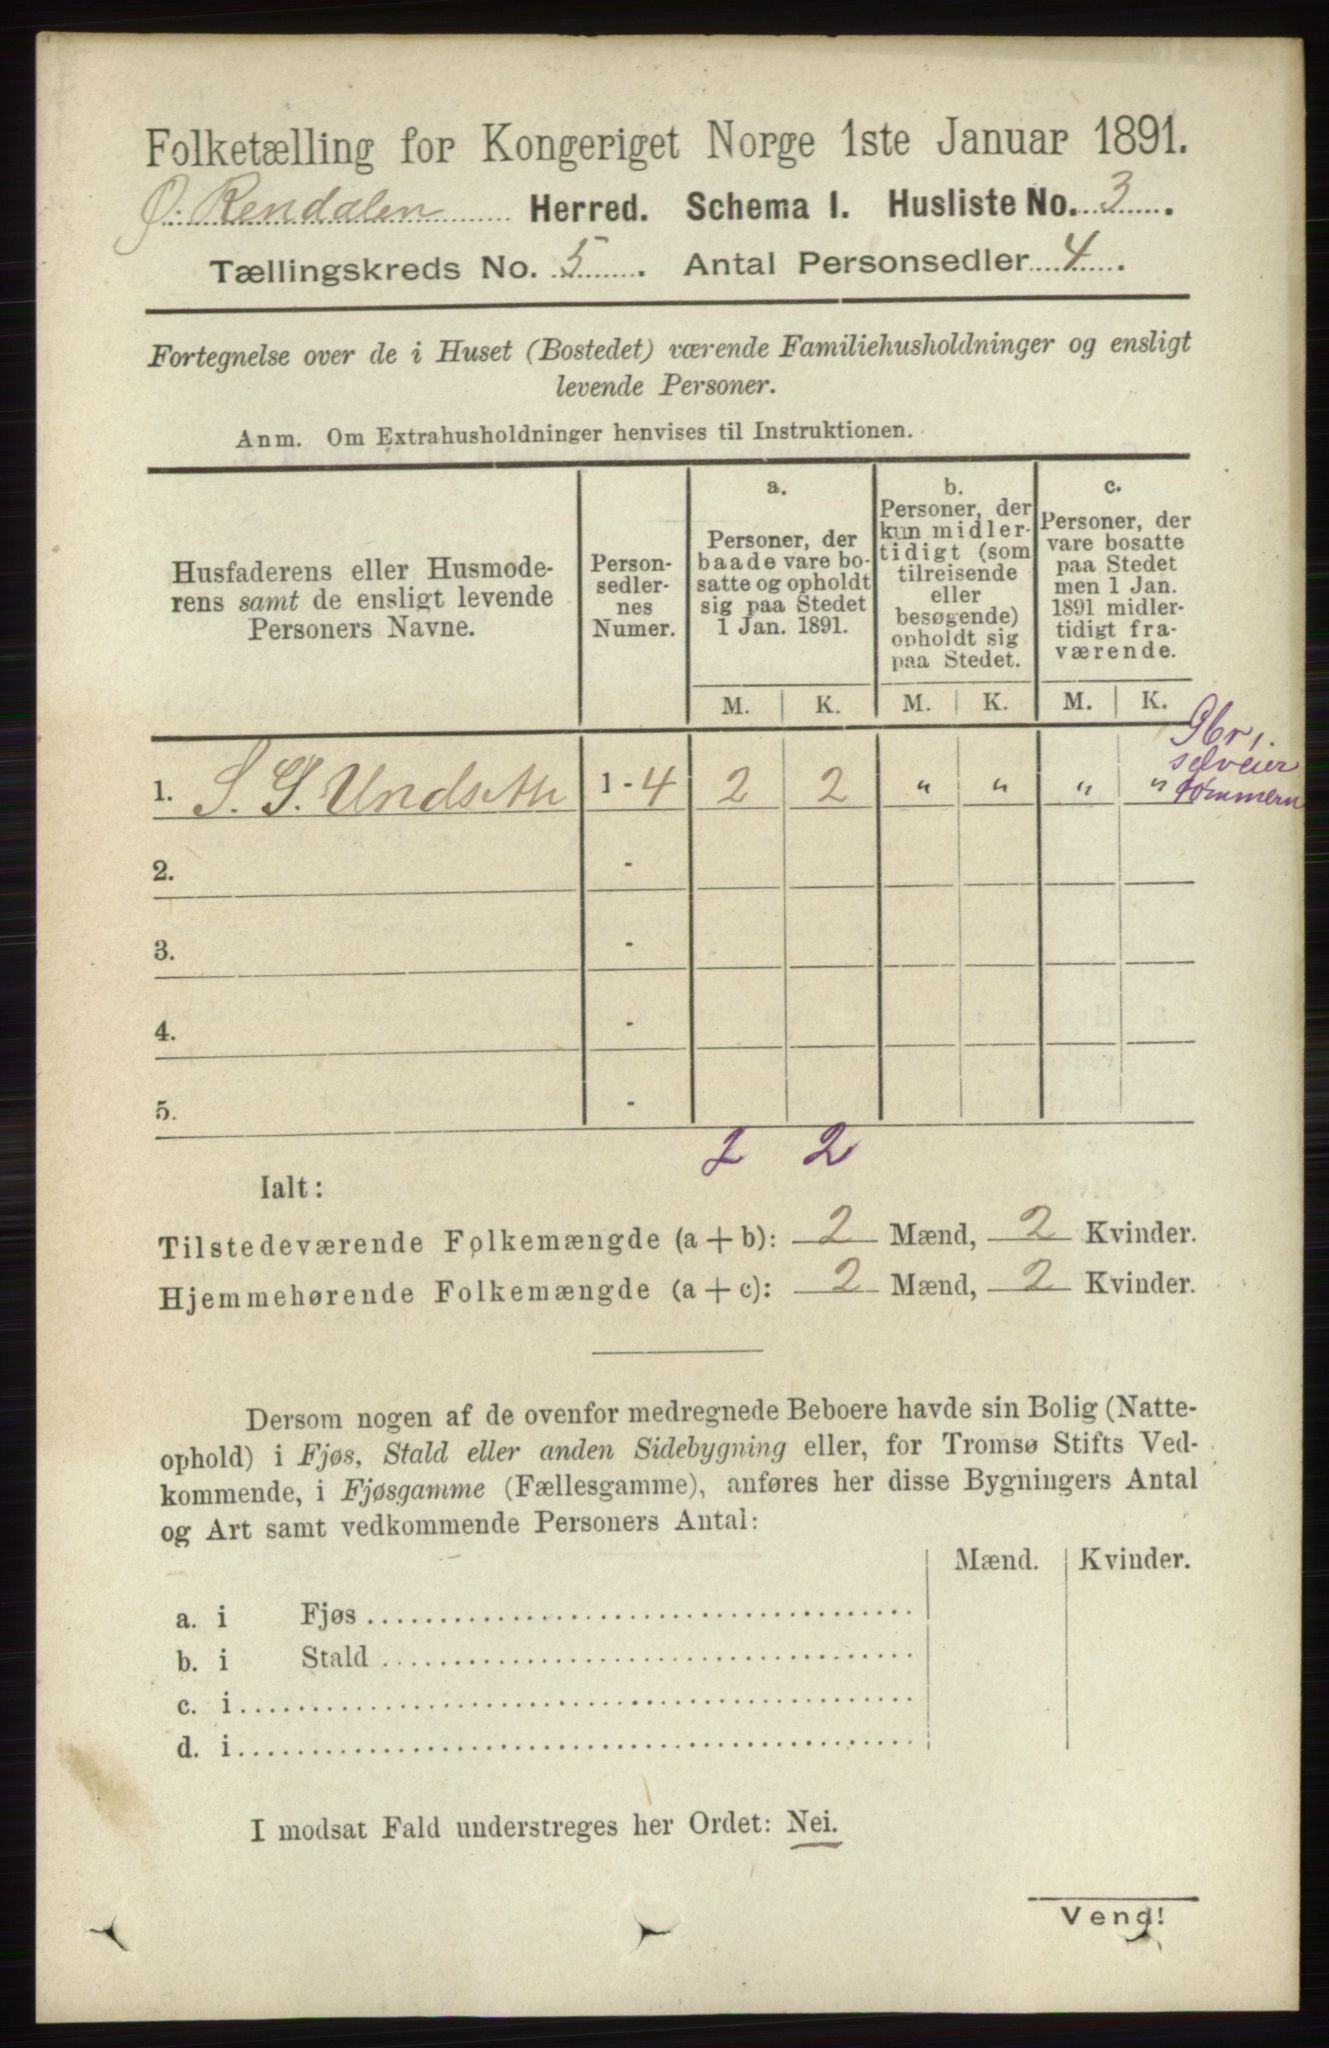 Folketælling for Kongeriget Norge 1ste Januar 1891.
Ø. Rendalen Herred. Schema I. Husliste No. 3.
Tællingskreds No. 5. Antal Personsedler 4.
Fortegnelse over de i Huset (Bostedet) værende Familiehusholdninger og ensligt
levende Personer.
Anm. Om Extrahusholdninger henvises til Instruktionen.
Husfaderens eller Husmode-
rens samt de ensligt levende
Personers Navne.
Person-
sedler-
nes
Numer.
a.
Personer, der
baade vare bo-
satte og opholdt
sig paa Stedet
1 Jan. 1891.
b.
Personer, der
kun midler-
tidigt (som
tilreisende
eller
besøgende)
opholdt sig
paa Stedet.
c.
Personer, der
vare bosatte
paa Stedet
men 1 Jan.
1891 midler-
tidigt fra-
værende.
M. K. M. K. M. K.
Gbr,
selveier
tømmerm
1. S. G. Undseth 1 - 4 2 2 " " " "
2. -
3. -
4. -
5. -
2 2
Ialt:
Tilstedeværende Folkemængde (a + b): 2 Mænd, 2 Kvinder.
Hjemmehørende Folkemængde (a + c): 2 Mænd, 2 Kvinder.
Dersom nogen af de ovenfor medregnede Beboere havde sin Bolig (Natte-
ophold) i Fjøs, Stald eller anden Sidebygning eller, for Tromsø Stifts Ved-
kommende, i Fjøsgamme (Fællesgamme), anføres her disse Bygningers Antal
og Art samt vedkommende Personers Antal:
Mænd. Kvinder.
a. i Fjøs
b. i Stald
c. i
d. i
I modsat Fald understreges her Ordet: Nei.
Vend!